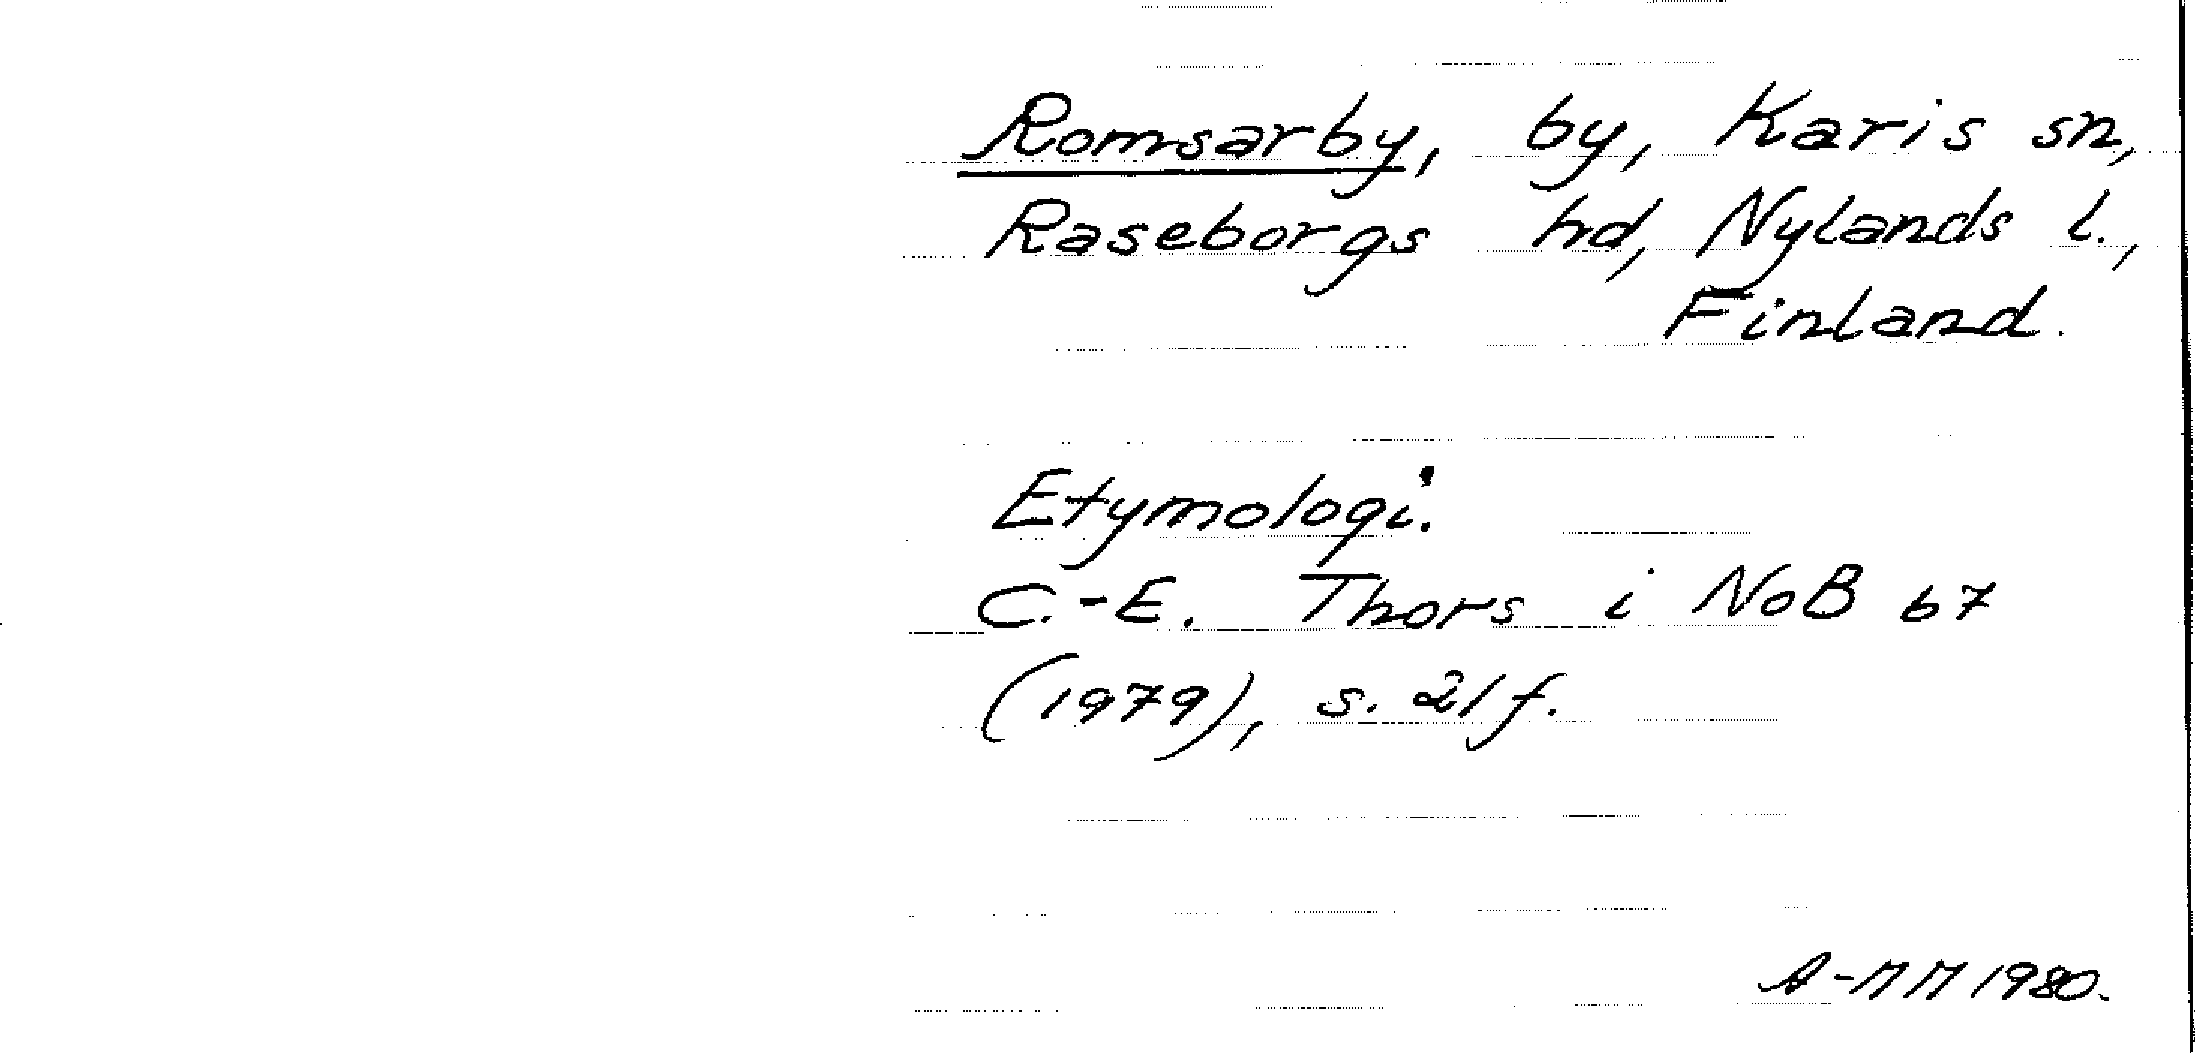 Romsarby, by, Karis sn,
Raseborgs hd, Nylands l.,
Finland.
Etymologi.
C.-E. Thors i NoB 67
(1979), s. 21f.
A-MM 1980.